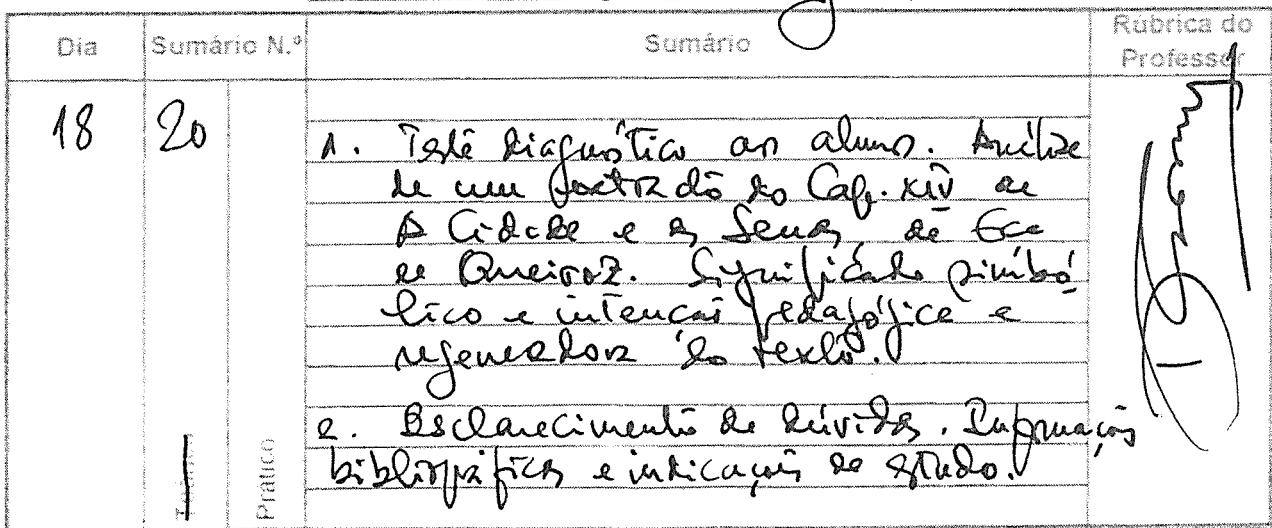 Dia Sumário N.º Sumário Rúbrica do Professor
18 20
1. Teste diagnóstico aos alunos. Análise
de um do Cap. XIV de
A Cidade e as Serras, de Eça
de Queiroz. Significado simbó
lico e intenção pedagógica e
regeneradora do texto.
2. Esclarecimento de dúvidas. Informações
bibliográficas e indicações de estudo.
Prático